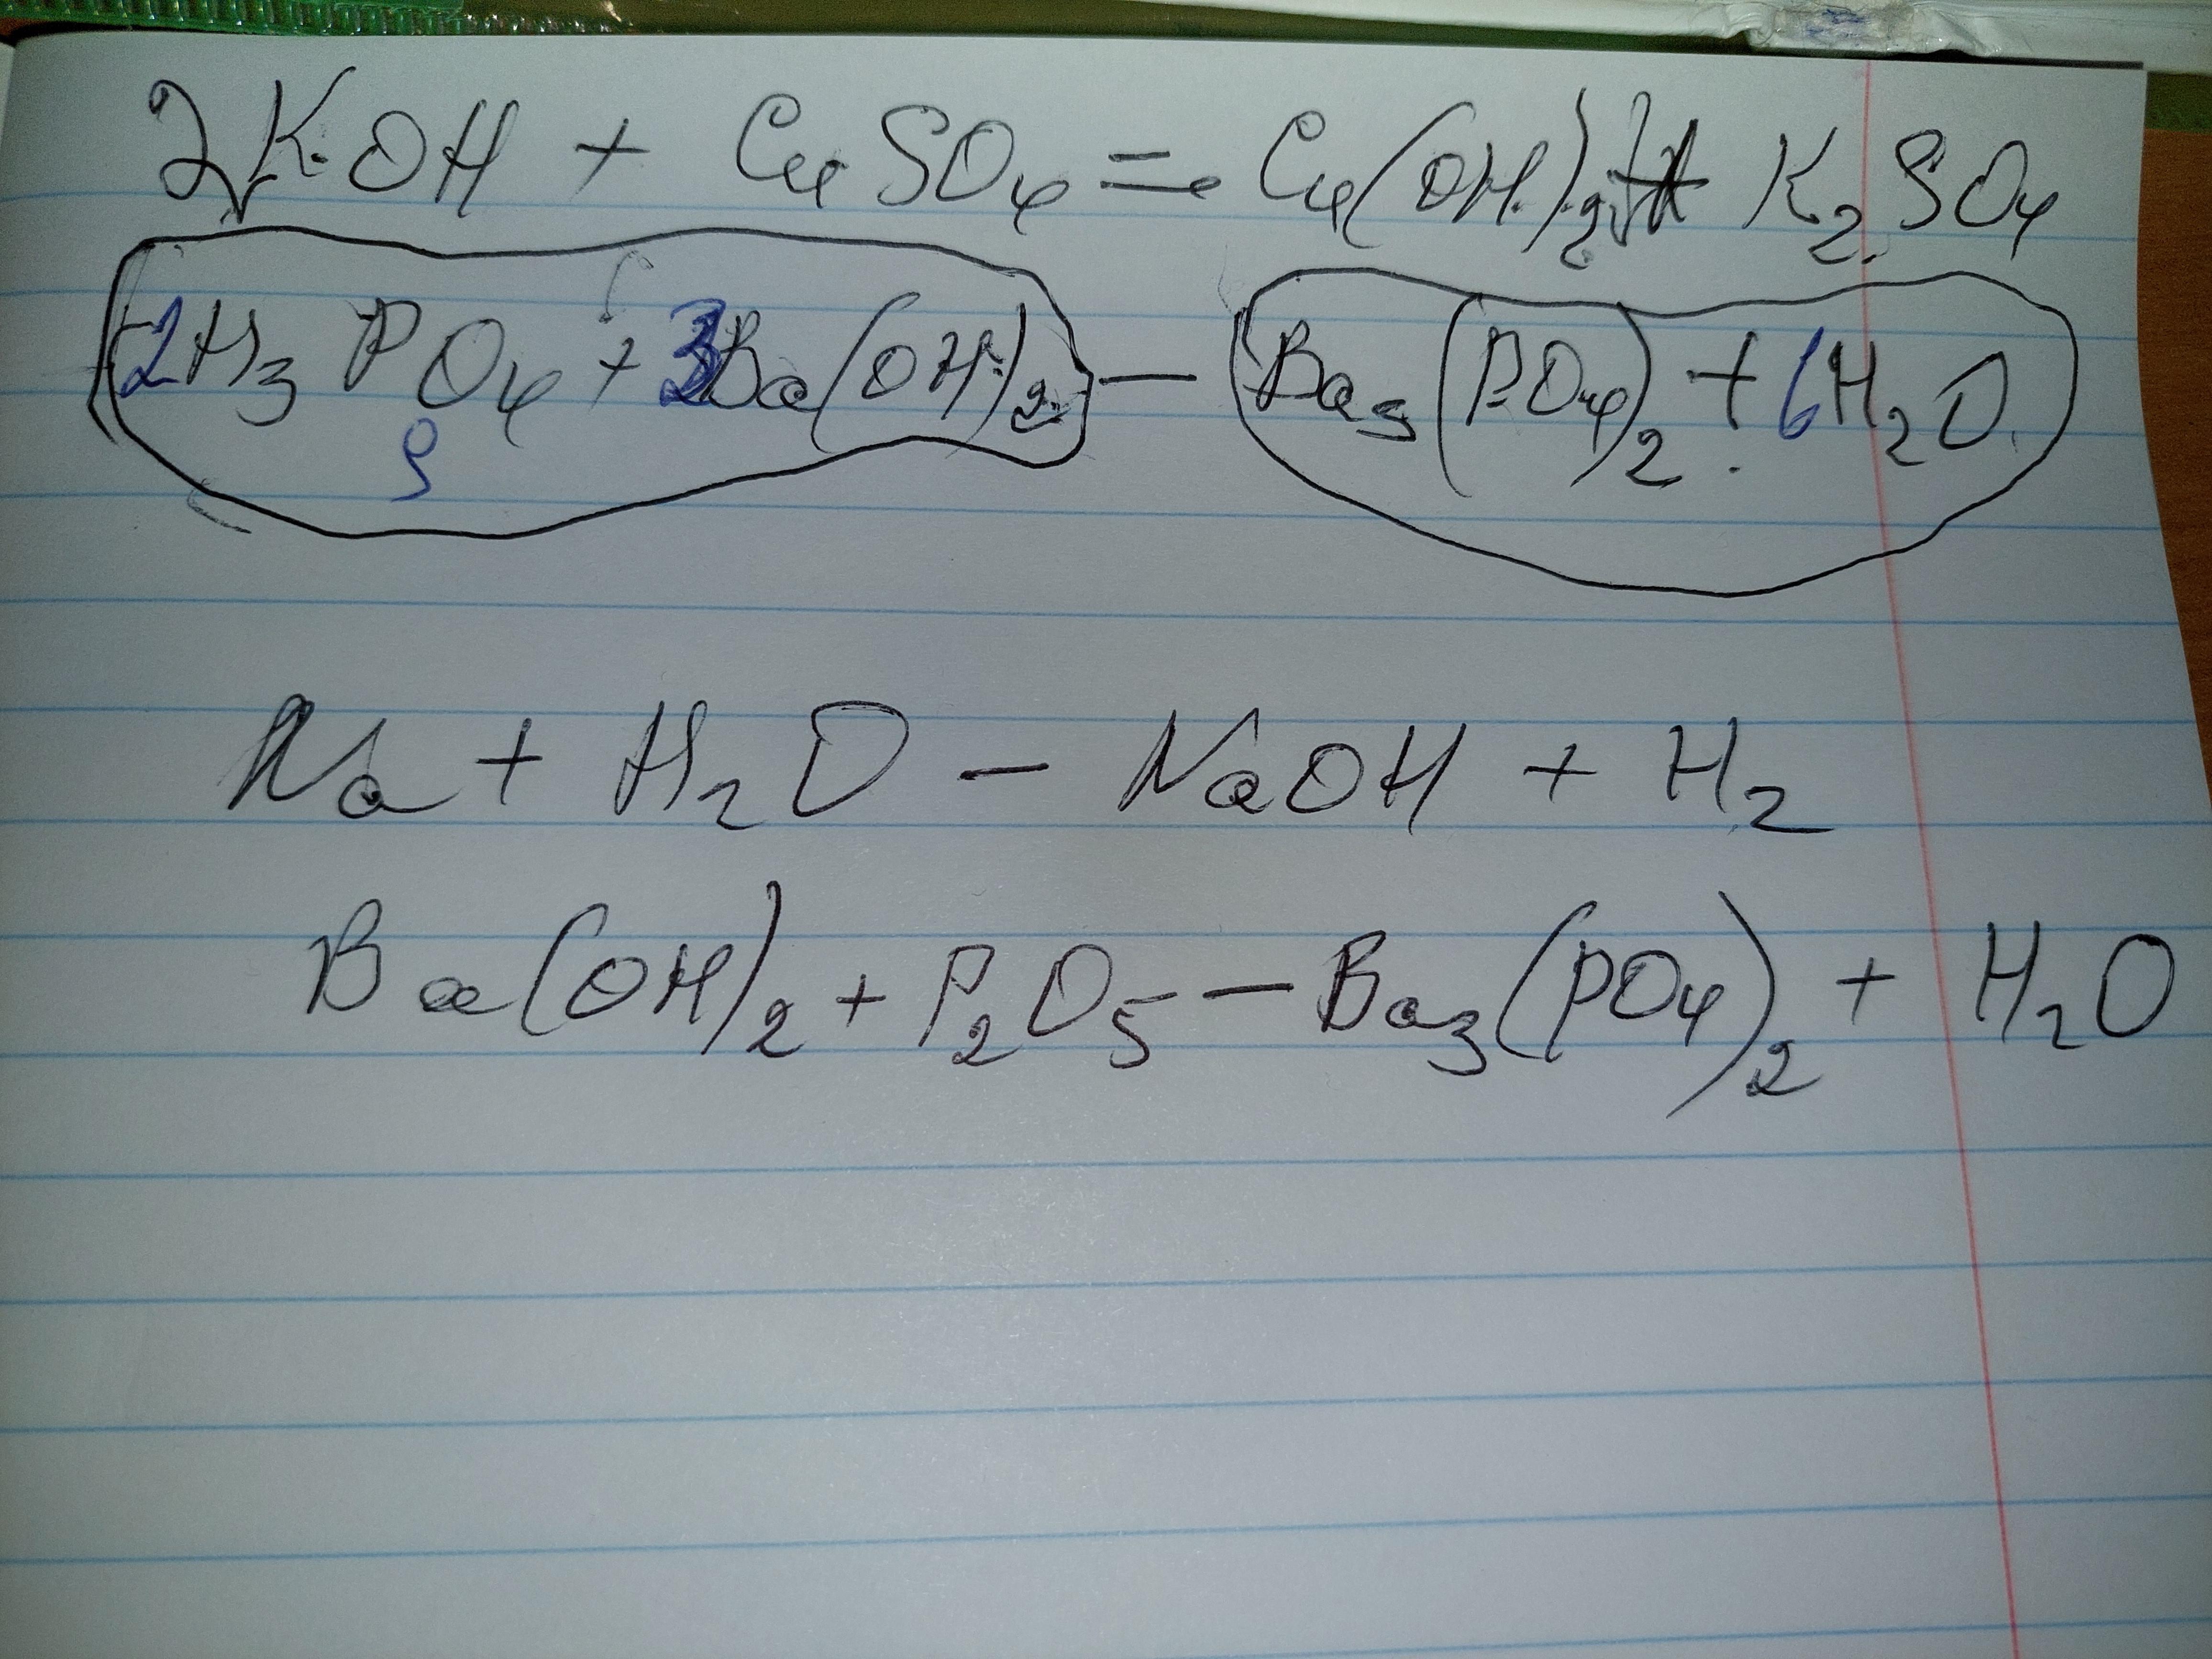 2KOH + CuSO₄ = Cu(OH)₂↓ + K₂SO₄
2H₃PO₄ + 3Ba(OH)₂ — Ba₃(PO₄)₂ + 6H₂O
Na + H₂O — NaOH + H₂
Ba(OH)₂ + P₂O₅ — Ba₃(PO₄)₂ + H₂O